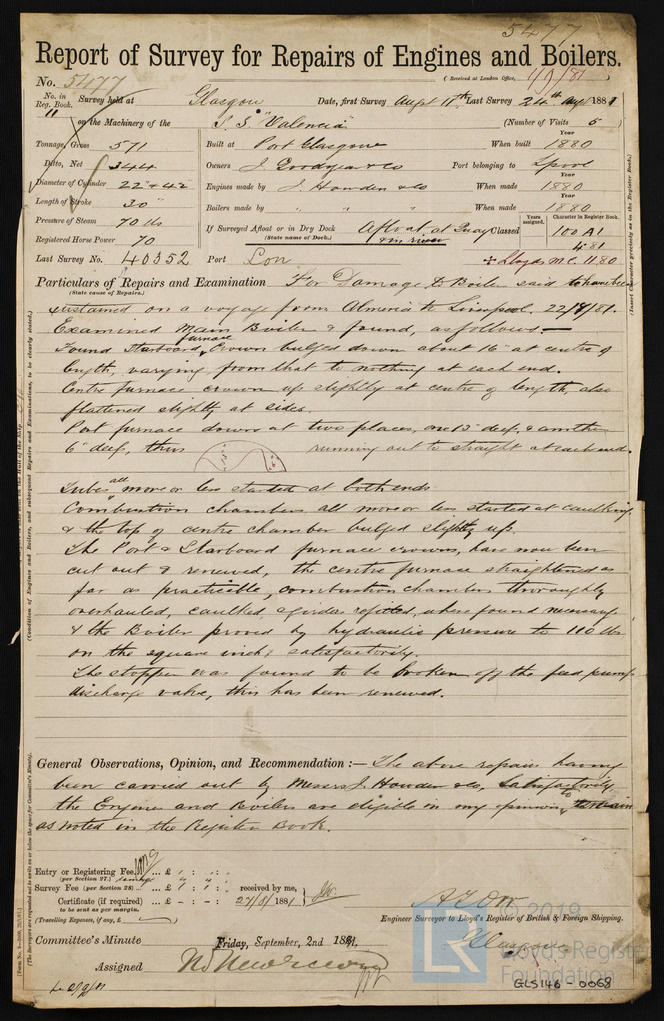 5477
Report of Survey for Repairs of Engines and Boilers.
No. 5477 (Received at London Office, 1/9/81)
No. in Reg. Book. 11 Survey held at Glasgow Date, first Survey Augt 11th Last Survey 24th Augt 1881
on the Machinery of the S.S. "Valencia" (Number of Visits 5)
Tonnage, Gross 571
Ditto, Net 344
Diameter of Cylinder 22" & 42"
Length of Stroke 30"
Pressure of Steam 70 lbs
Registered Horse Power 70
Built at Port Glasgow When built Year 1880
Owners J. Goodyear & Co Port belonging to Lpool
Engines made by J. Howden & Co When made Year 1880
Boilers made by " " " When made Year 1880
If Surveyed Afloat or in Dry Dock Afloat at Quay & in river Classed
(State name of Dock.)
Years assigned. Character in Register Book.
100 A1
4.81
Last Survey No. 40352 Port Lon Lloyds M.C. 11.80
Particulars of Repairs and Examination For Damage to Boiler said to have been
(State cause of Repairs.)
sustained on a voyage from Almeria to Liverpool. 22/7/81.
Examined Main Boiler & found, as follows:—
Found Starboard furnace Crown bulged down about 16" at centre of
length, varying from that to nothing at each end.
Centre furnace crown up slightly at centre of length, also
flattened slightly at sides.
Port furnace down at two places, one 13" deep, & another
6" deep, thus running out to straight at each end.
Tubes all more or less started at both ends
Combustion chambers all more or less started at caulking
& the top of centre chamber bulged slightly up.
The Port & Starboard furnace crowns, have now been
cut out & renewed, the centre furnace straightened as
far as practicable, combustion chambers thoroughly
overhauled, caulked, & girders refitted, where found necessary
& the Boiler proved by hydraulic pressure to 110 lbs
on the square inch, & satisfactorily.
The stopper was found to be broken off the feed pump
discharge valve, this has been renewed.
General Observations, Opinion, and Recommendation :— The above repairs having
been carried out by Messrs J. Howden & Co, Satisfactorily
the Engines and Boilers are eligible in my opinion to remain
as noted in the Register Book.
Entry or Registering Fee ... £
(per Section 27.)
Survey Fee (per Section 28) ... £ 1 : 1 : received by me,
Certificate (if required) ... £ - : - : 27/8/1881
to be sent as per margin.
(Travelling Expenses, if any, £ )
A. T. Orr
Engineer Surveyor to Lloyd's Register of British & Foreign Shipping.
Glasgow
Committee's Minute Friday, September, 2nd 1881.
Assigned
2019
Lloyd's Register
Foundation
LR
GLS146-0068
(Condition of Engines and Boilers, and subsequent Repairs and Examinations, to be clearly stated.)
(Insert Character precisely as in the Register Book.)